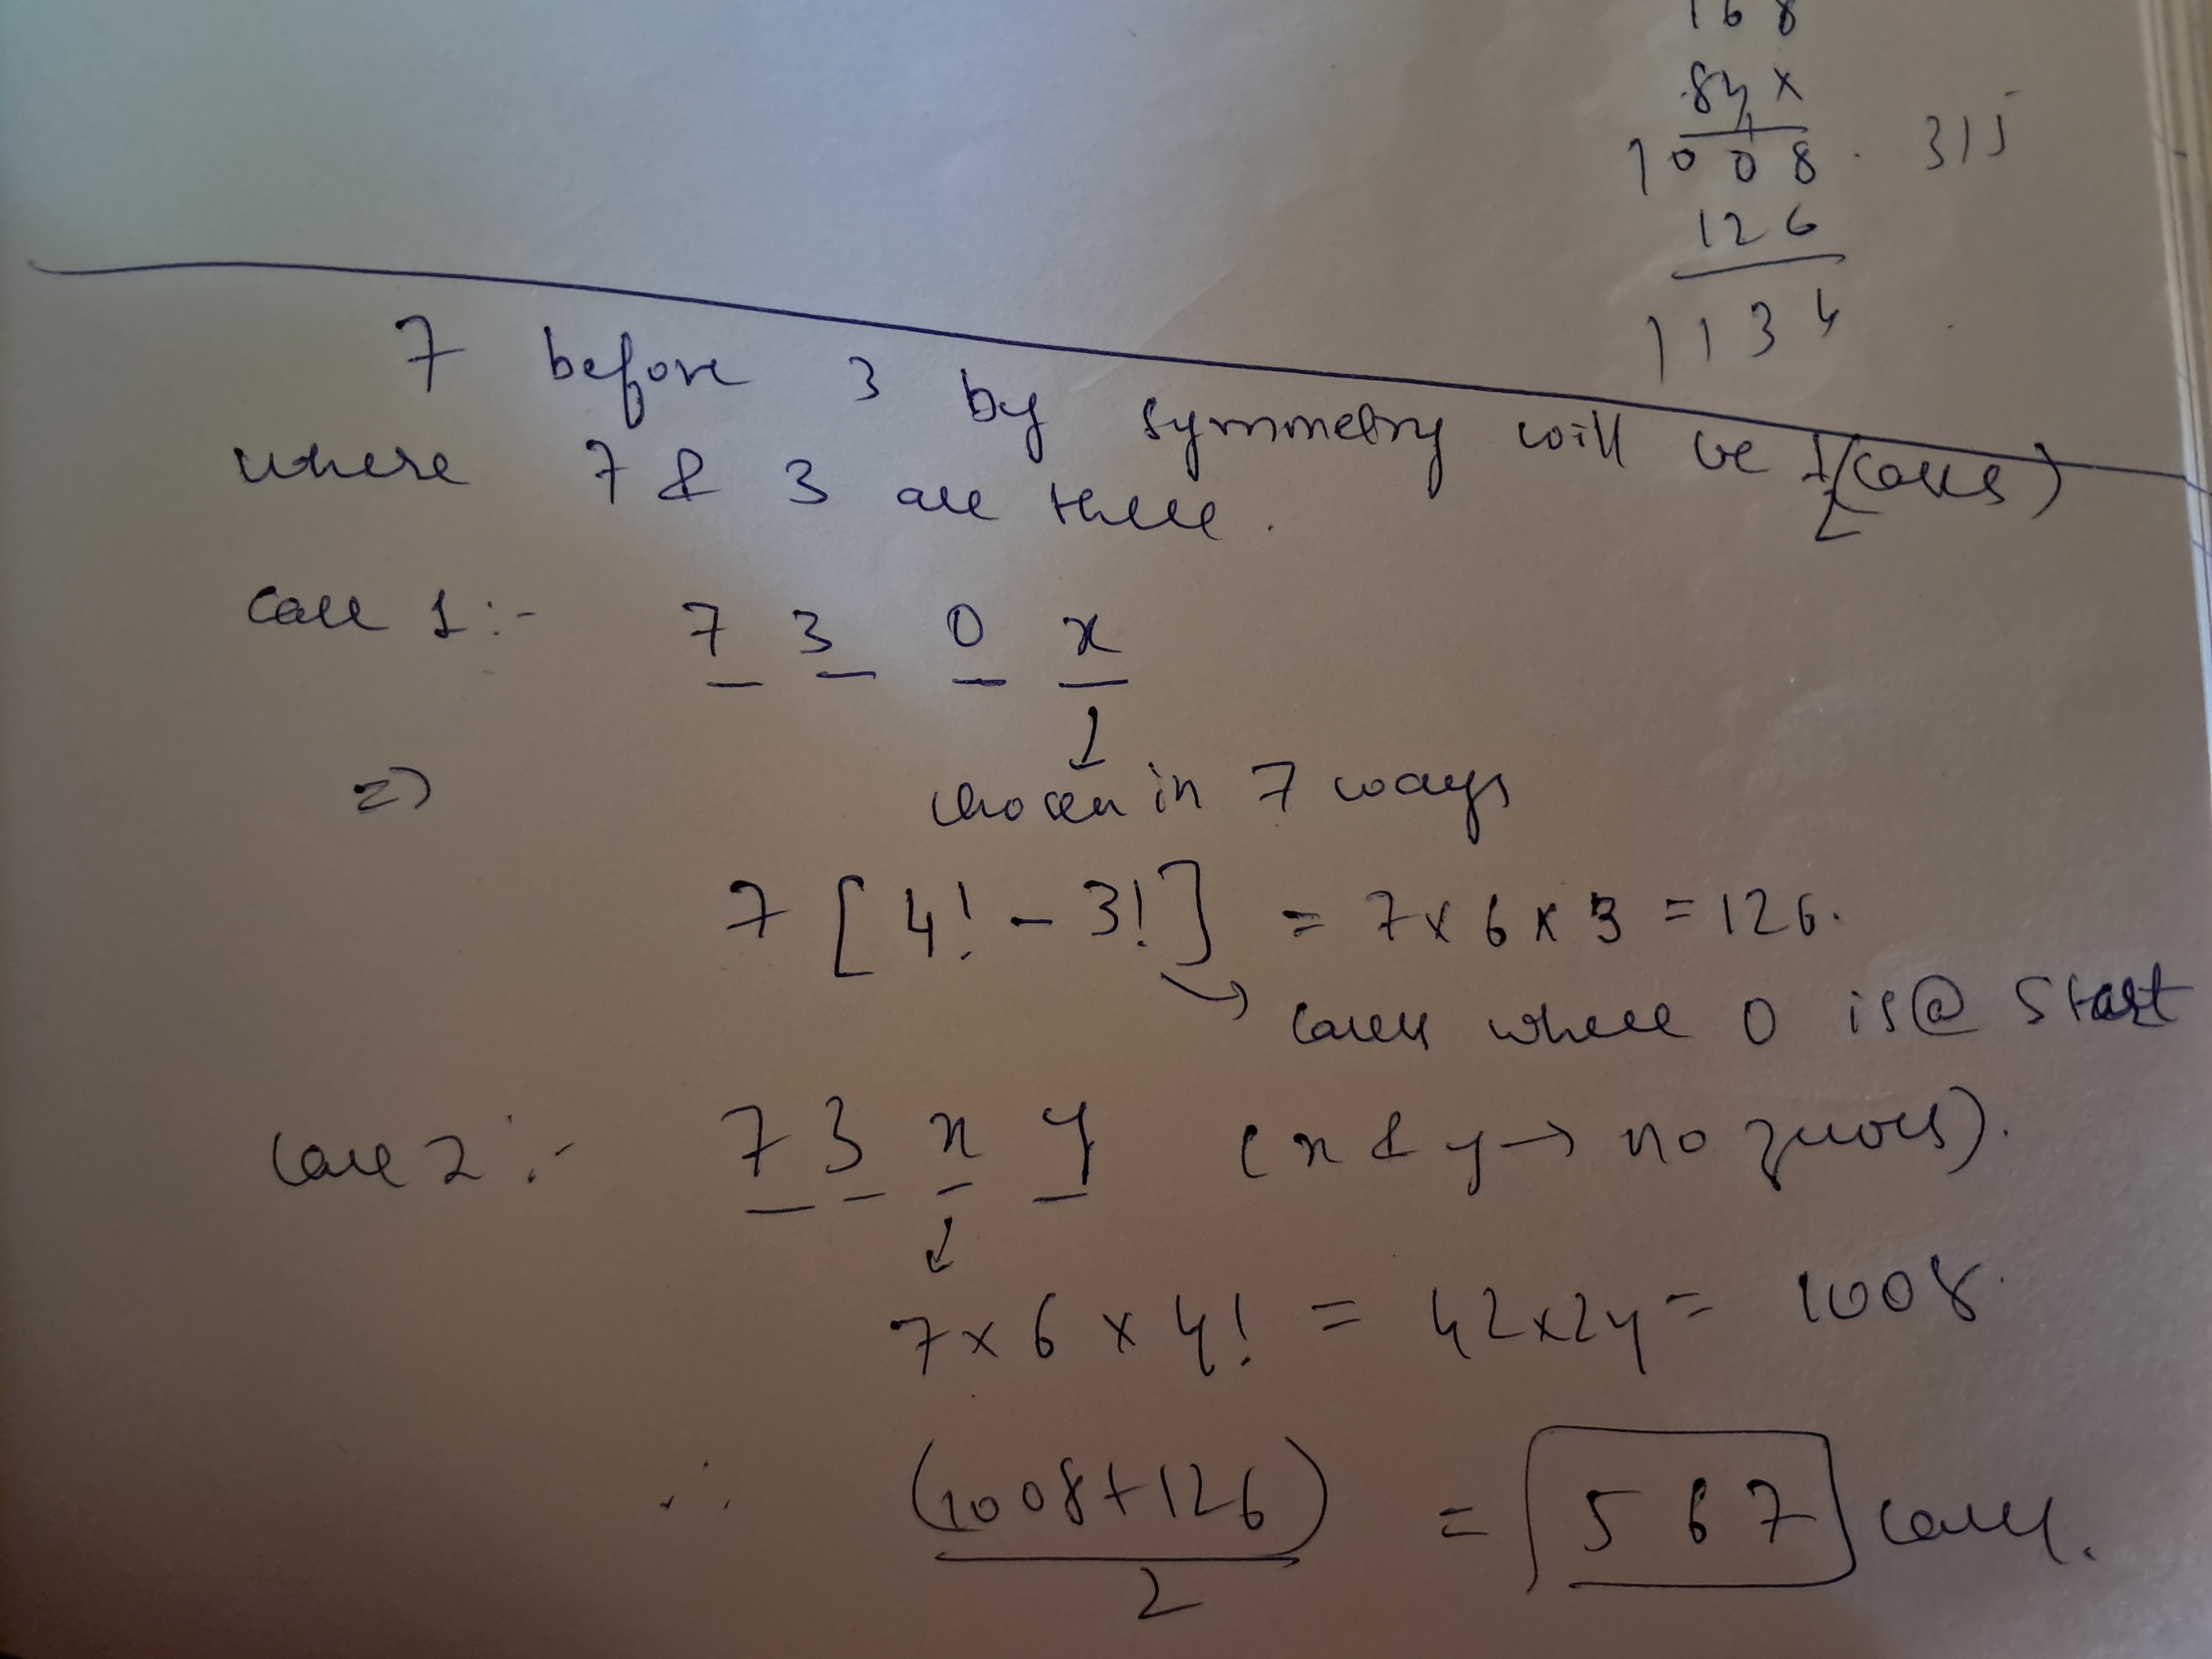 168
84x
1008 . 315
126
1134
7 before 3 by symmetry will be 1/2 (cases)
where 7 & 3 are there.
Case 1:- 7 3 0 x
=> chosen in 7 ways
7 [4! - 3!] = 7 x 6 x 3 = 126.
cases where 0 is @ start
Case 2:- 7 3 x y (x & y → no zeroes).
7 x 6 x 4! = 42x24 = 1008.
∴ (1008+126)/2 = 567 cases.